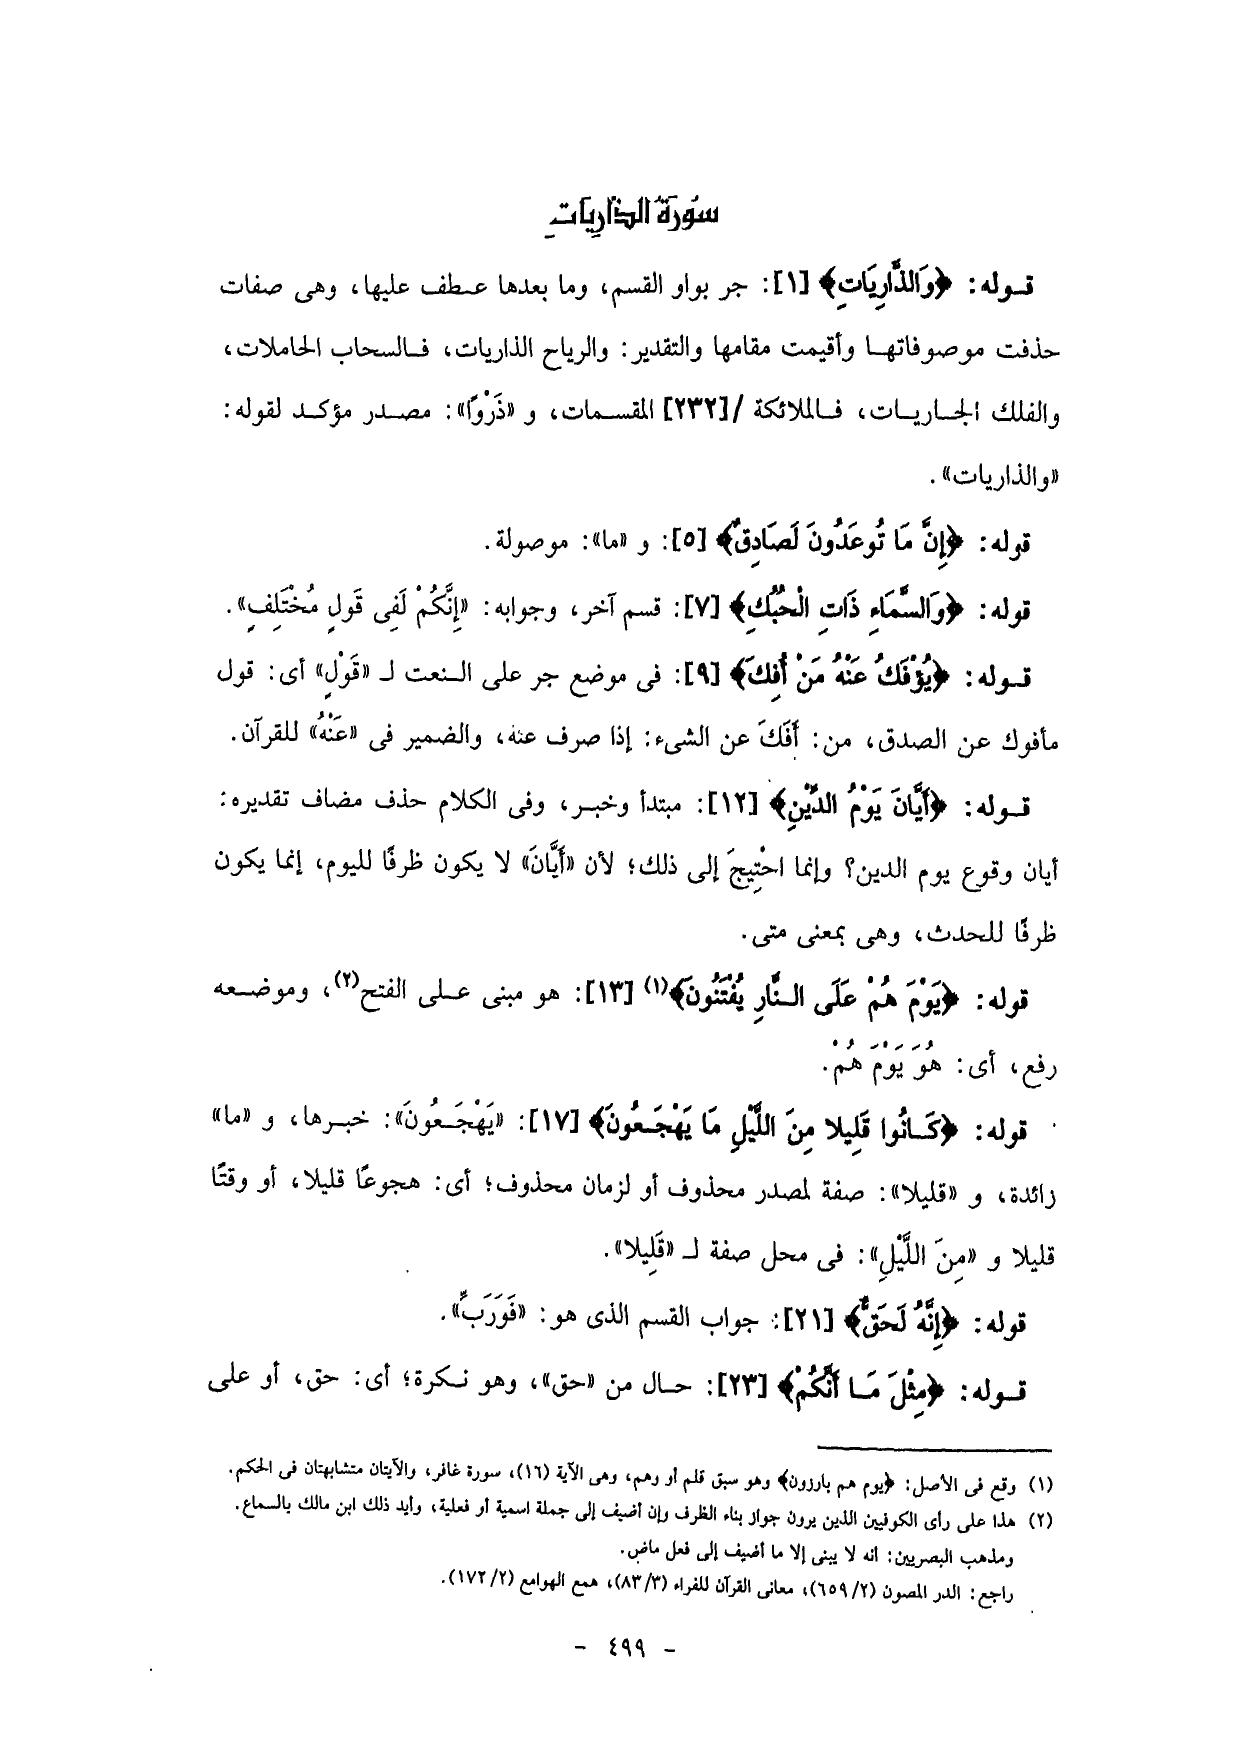 سُورَة الذَّارِيَاتِ
قوله: ﴿وَالذَّارِيَاتِ﴾ [١]: جر بواو القسم، وما بعدها عطف عليها، وهى صفات
حذفت موصوفاتها وأقيمت مقامها والتقدير: والرياح الذاريات، فالسحاب الحاملات،
والفلك الجاريات، فالملائكة /[٢٣٢] المقسمات، و «ذَرْوًا»: مصدر مؤكد لقوله:
«والذاريات».
قوله: ﴿إِنَّ مَا تُوعَدُونَ لَصَادِقٌ﴾ [٥]: و «ما»: موصولة.
قوله: ﴿وَالسَّمَاءِ ذَاتِ الْحُبُكِ﴾ [٧]: قسم آخر، وجوابه: «إِنَّكُمْ لَفِى قَولٍ مُخْتَلِفٍ».
قوله: ﴿يُؤْفَكُ عَنْهُ مَنْ أُفِكَ﴾ [٩]: فى موضع جر على النعت لـ «قَوْلٍ» أى: قول
مأفوك عن الصدق، من: أَفَكَ عن الشىء: إذا صرف عنه، والضمير فى «عَنْهُ» للقرآن.
قوله: ﴿أَيَّانَ يَوْمُ الدِّيْنِ﴾ [١٢]: مبتدأ وخبر، وفى الكلام حذف مضاف تقديره:
أيان وقوع يوم الدين؟ وإنما احْتِيجَ إلى ذلك؛ لأن «أَيَّانَ» لا يكون ظرفًا لليوم، إنما يكون
ظرفًا للحدث، وهى بمعنى متى.
قوله: ﴿يَوْمَ هُمْ عَلَى النَّارِ يُفْتَنُونَ﴾(١) [١٣]: هو مبنى على الفتح(٢)، وموضعه
رفع، أى: هُوَ يَوْمَ هُمْ.
قوله: ﴿كَانُوا قَلِيلا مِنَ اللَّيْلِ مَا يَهْجَعُونَ﴾ [١٧]: «يَهْجَعُونَ»: خبرها، و «ما»
زائدة، و «قليلا»: صفة لمصدر محذوف أو لزمان محذوف؛ أى: هجوعًا قليلا، أو وقتًا
قليلا و «مِنَ اللَّيْلِ»: فى محل صفة لـ «قَلِيلا».
قوله: ﴿إِنَّهُ لَحَقٌّ﴾ [٢١]: جواب القسم الذى هو: «فَوَرَبِّ».
قوله: ﴿مِثْلَ مَا أَنَّكُمْ﴾ [٢٣]: حال من «حق»، وهو نكرة؛ أى: حق، أو على
(١) وقع فى الأصل: ﴿يوم هم بارزون﴾ وهو سبق قلم أو وهم، وهى الآية (١٦)، سورة غافر، والآيتان متشابهتان فى الحكم.
(٢) هذا على رأى الكوفيين الذين يرون جواز بناء الظرف وإن أضيف إلى جملة اسمية أو فعلية، وأيد ذلك ابن مالك بالسماع.
ومذهب البصريين: أنه لا يبنى إلا ما أضيف إلى فعل ماض.
راجع: الدر المصون (٦٥٩/٢)، معانى القرآن للفراء (٨٣/٣)، همع الهوامع (١٧٢/٢).
- ٤٩٩ -